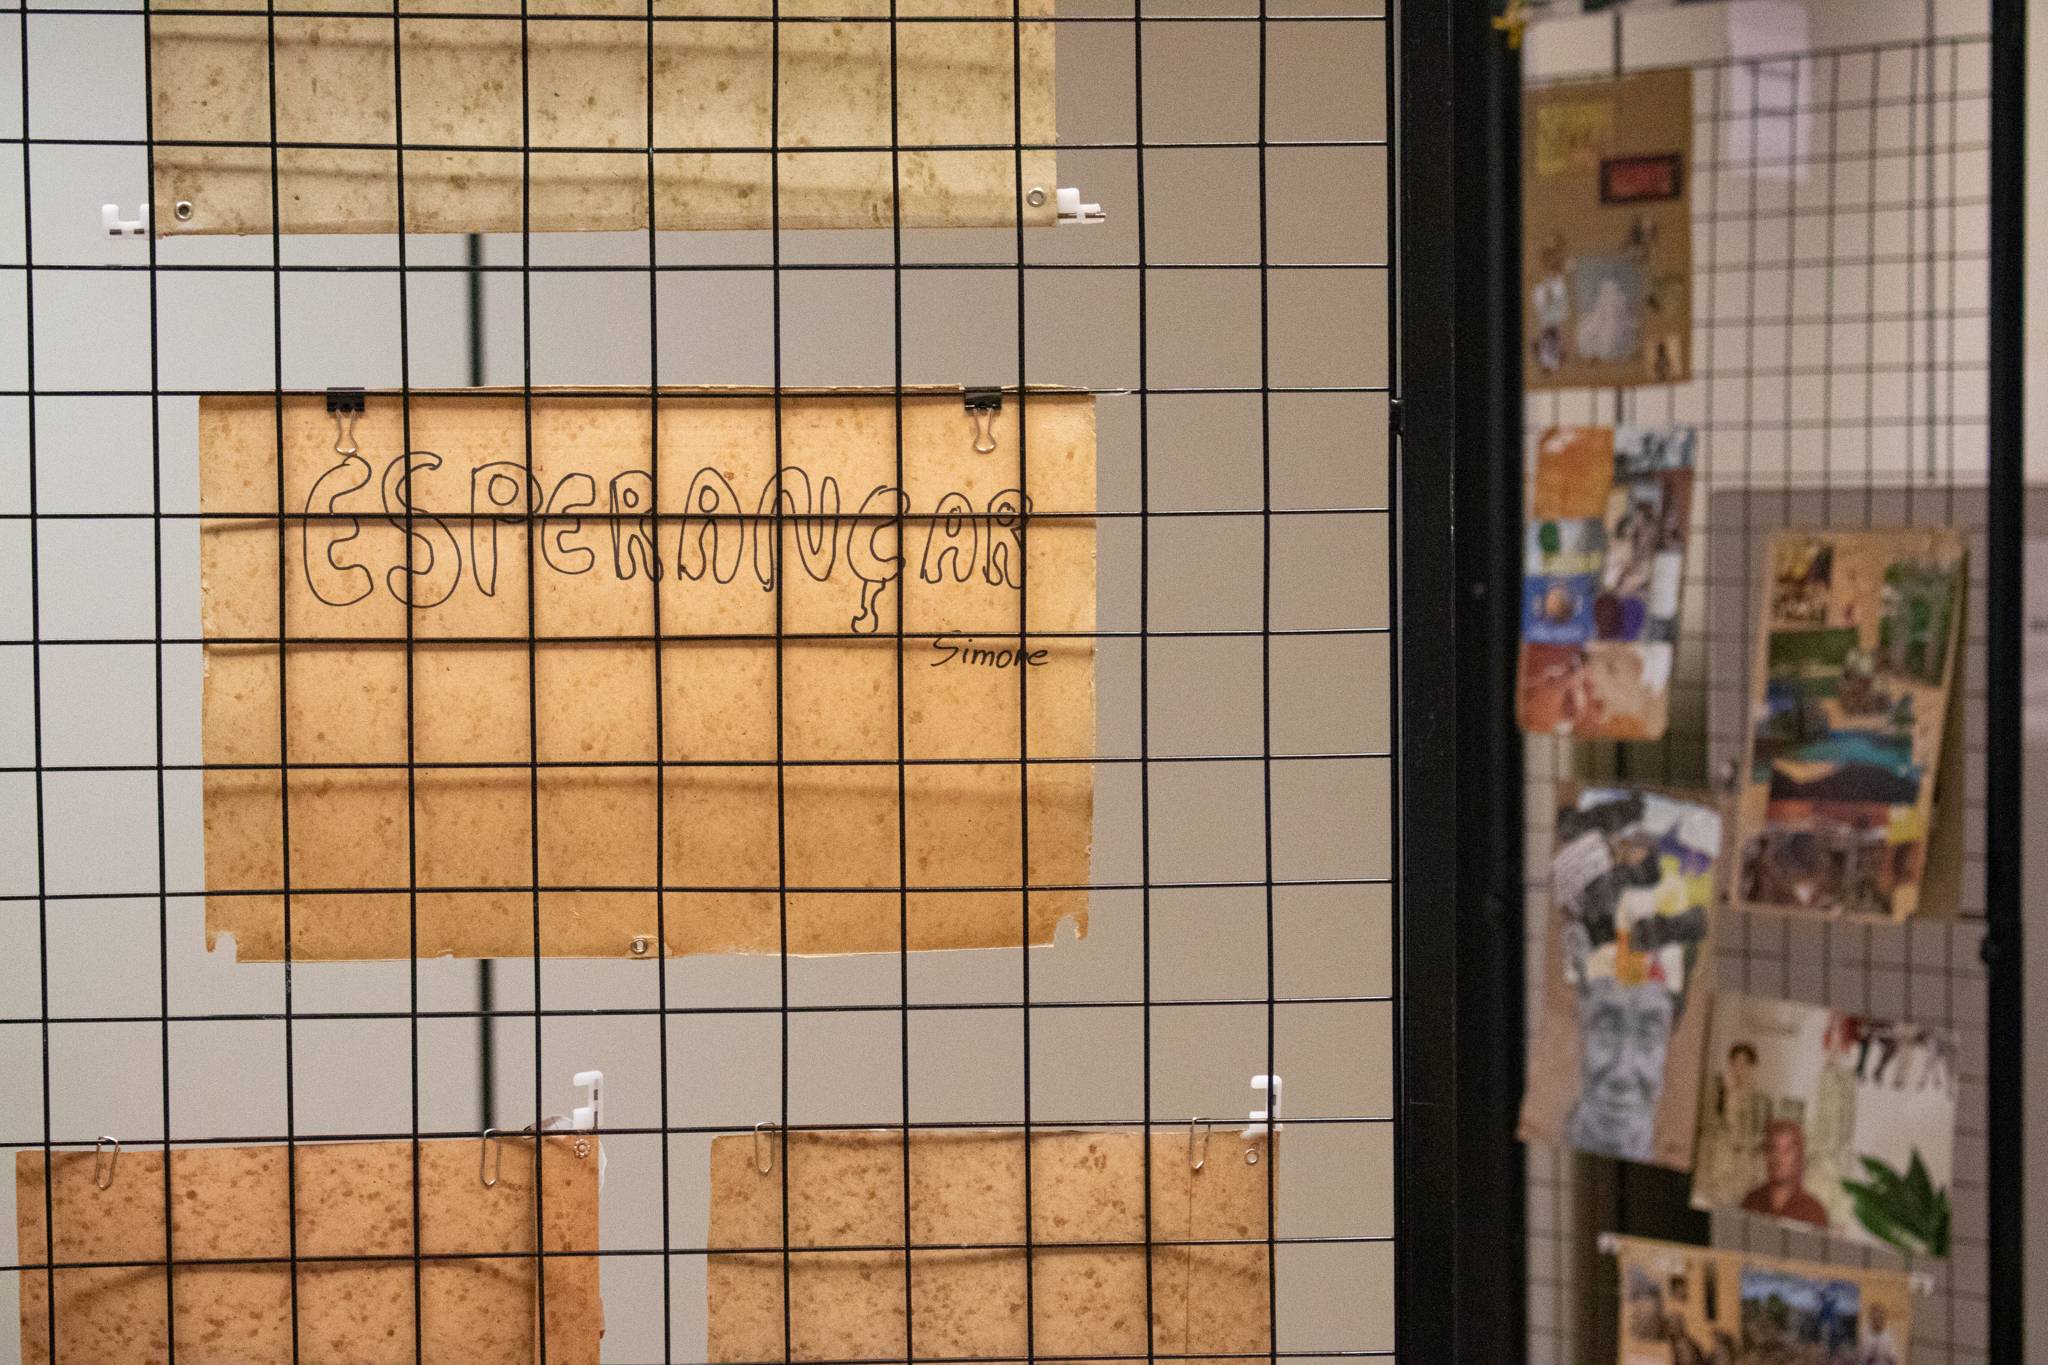 ESPERANÇAR
Simone